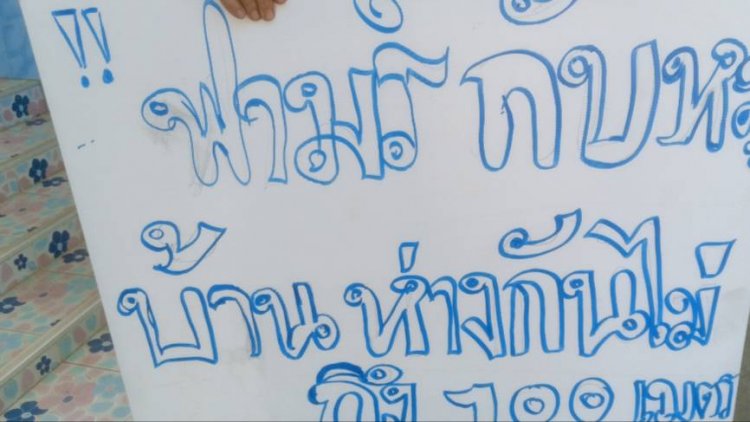 !! ฟามร์ กับห
บ้าน ห่างกันไม่
ถึง 100 เมตร